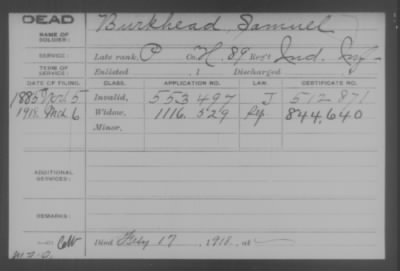 DEAD
NAME OF SOLDIER: Burkhead, Samuel
SERVICE: Late rank, P Co. H, 89 Reg't Ind. Inf.
TERM OF SERVICE: Enlisted , 1 Discharged , 1
DATE OF FILING. CLASS. APPLICATION NO. LAW. CERTIFICATE NO.
1885 Invalid, 553 497 J 512 871
1918. Mch 6 Widow, 1116. 529 844,640
Minor,
ADDITIONAL SERVICES:
REMARKS:
Died Feby 17, 1918, at